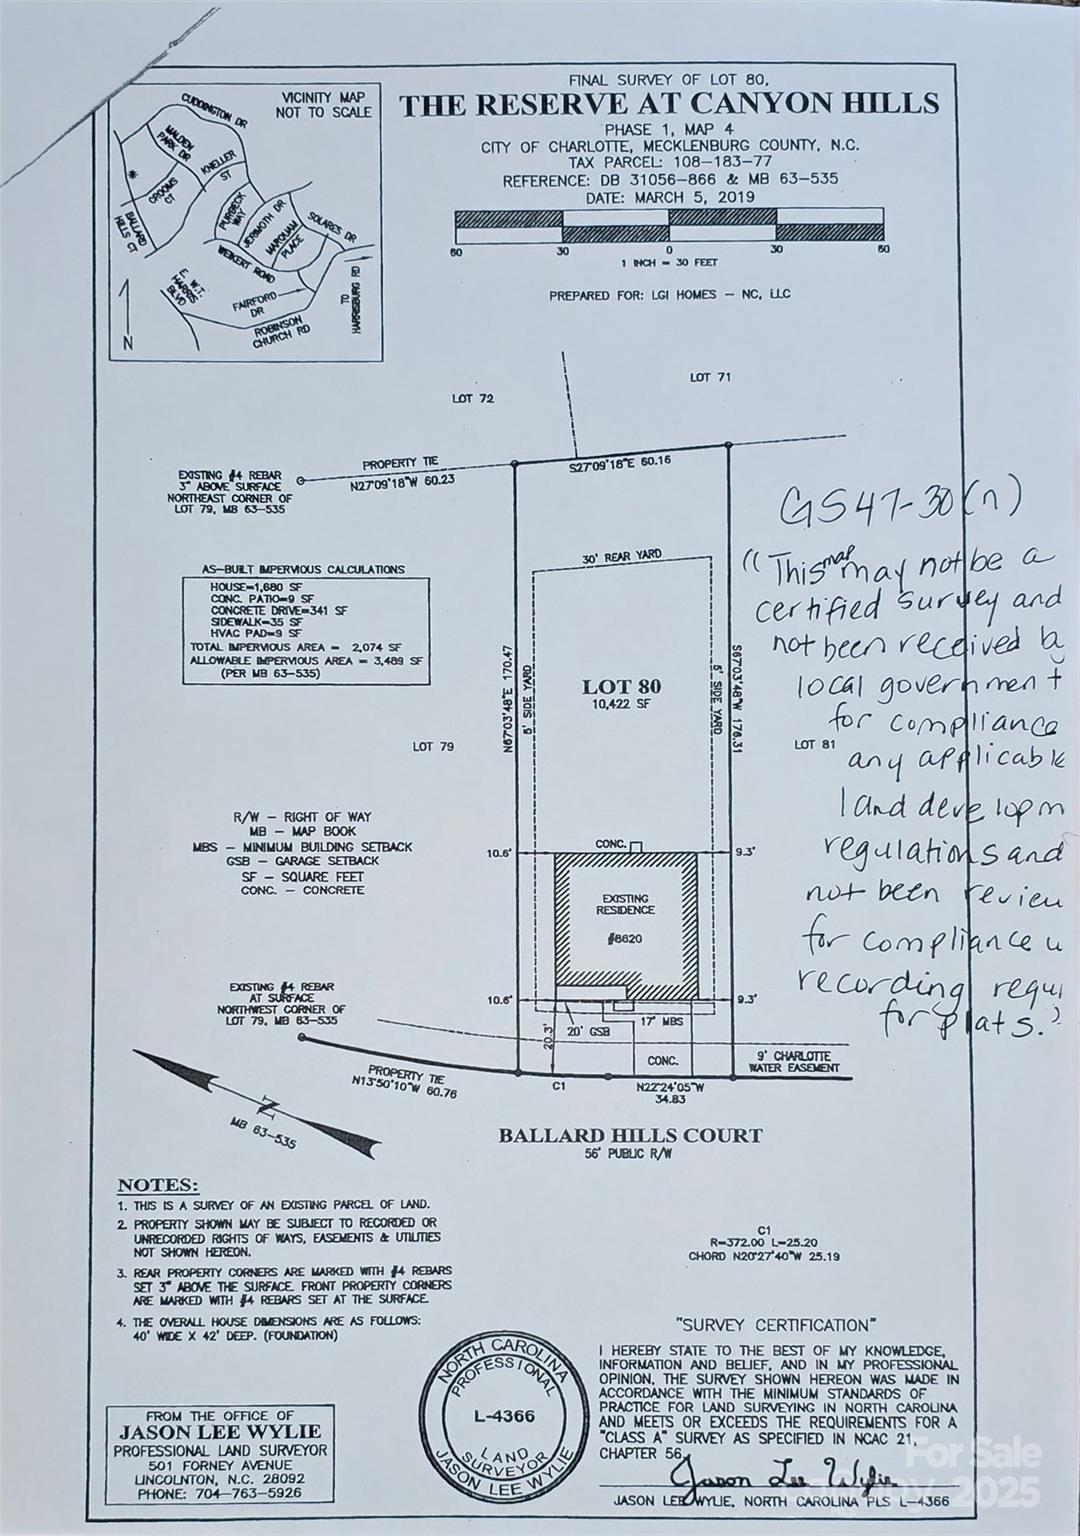 FINAL SURVEY OF LOT 80,
THE RESERVE AT CANYON HILLS
PHASE 1, MAP 4
CITY OF CHARLOTTE, MECKLENBURG COUNTY, N.C.
TAX PARCEL: 108-183-77
REFERENCE: DB 31056-866 & MB 63-535
DATE: MARCH 5, 2019
60 30 0 30 60
1 INCH = 30 FEET
PREPARED FOR: LGI HOMES - NC, LLC
VICINITY MAP
NOT TO SCALE
CUDDINGTON DR
MALDEN
PARK DR
KNELLER
ST
CROOMS
CT
BALLARD
HILLS CT
PURBECK
WAY
JERMOTH DR
MARQUAM
PLACE
SOLARES DR
WEIKERT ROAD
E. W.T.
HARRIS
BLVD
FAIRFORD
DR
ROBINSON
CHURCH RD
TO
HARRISBURG RD
N
LOT 72
LOT 71
PROPERTY TIE
N27°09'18"W 60.23
S27°09'18"E 60.16
EXISTING #4 REBAR
3" ABOVE SURFACE
NORTHEAST CORNER OF
LOT 79, MB 63-535
30' REAR YARD
AS-BUILT IMPERVIOUS CALCULATIONS
HOUSE=1,680 SF
CONC. PATIO=9 SF
CONCRETE DRIVE=341 SF
SIDEWALK=35 SF
HVAC PAD=9 SF
TOTAL IMPERVIOUS AREA = 2,074 SF
ALLOWABLE IMPERVIOUS AREA = 3,489 SF
(PER MB 63-535)
N67°03'48"E 170.47
5' SIDE YARD
LOT 80
10,422 SF
5' SIDE YARD
S67°03'48"W 176.31
LOT 79
LOT 81
GS 47-30(n)
"This map may not be a
certified survey and
not been received b
local government
for compliance
any applicable
land developm
regulations and
not been review
for compliance w
recording requi
for plats."
R/W - RIGHT OF WAY
MB - MAP BOOK
MBS - MINIMUM BUILDING SETBACK
GSB - GARAGE SETBACK
SF - SQUARE FEET
CONC. - CONCRETE
CONC.
10.6'
9.3'
EXISTING
RESIDENCE
#8620
10.6'
9.3'
20' GSB
17' MBS
20.3'
CONC.
9' CHARLOTTE
WATER EASEMENT
EXISTING #4 REBAR
AT SURFACE
NORTHWEST CORNER OF
LOT 79, MB 63-535
PROPERTY TIE
N13°50'10"W 60.76
C1
N22°24'05"W
34.83
N
MB 63-535
BALLARD HILLS COURT
56' PUBLIC R/W
NOTES:
1. THIS IS A SURVEY OF AN EXISTING PARCEL OF LAND.
2. PROPERTY SHOWN MAY BE SUBJECT TO RECORDED OR
UNRECORDED RIGHTS OF WAYS, EASEMENTS & UTILITIES
NOT SHOWN HEREON.
3. REAR PROPERTY CORNERS ARE MARKED WITH #4 REBARS
SET 3" ABOVE THE SURFACE. FRONT PROPERTY CORNERS
ARE MARKED WITH #4 REBARS SET AT THE SURFACE.
4. THE OVERALL HOUSE DIMENSIONS ARE AS FOLLOWS:
40' WIDE X 42' DEEP. (FOUNDATION)
C1
R=372.00 L=25.20
CHORD N20°27'40"W 25.19
"SURVEY CERTIFICATION"
I HEREBY STATE TO THE BEST OF MY KNOWLEDGE,
INFORMATION AND BELIEF, AND IN MY PROFESSIONAL
OPINION, THE SURVEY SHOWN HEREON WAS MADE IN
ACCORDANCE WITH THE MINIMUM STANDARDS OF
PRACTICE FOR LAND SURVEYING IN NORTH CAROLINA
AND MEETS OR EXCEEDS THE REQUIREMENTS FOR A
"CLASS A" SURVEY AS SPECIFIED IN NCAC 21,
CHAPTER 56.
Jason Lee Wylie
JASON LEE WYLIE, NORTH CAROLINA PLS L-4366
NORTH CAROLINA
PROFESSIONAL
L-4366
LAND
SURVEYOR
JASON LEE WYLIE
FROM THE OFFICE OF
JASON LEE WYLIE
PROFESSIONAL LAND SURVEYOR
501 FORNEY AVENUE
LINCOLNTON, N.C. 28092
PHONE: 704-763-5926
For Sale
2025